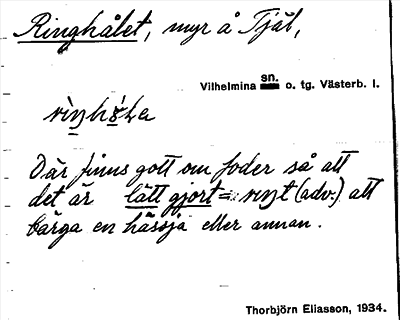 Ringhålet, myr å Tjäl,
Vilhelmina sn. o. tg. Västerb. l.
Där finns gott om foder så att
det är lätt gjort = riŋt (adv.) att
bärga en hässja eller annan.
Thorbjörn Eliasson, 1934.